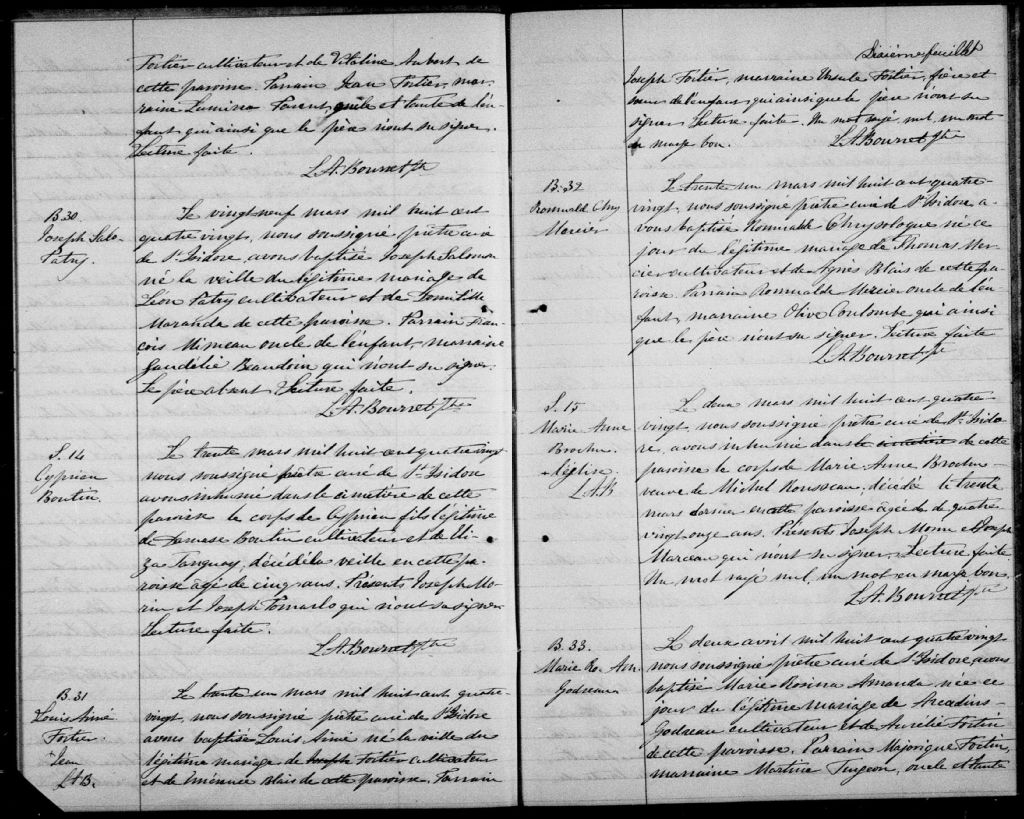 Fortier cultivateur et de Vitaline Aubert de
cette paroisse. Parrain Jean Fortier, mar-
raine Lumina Parent, oncle et tante de l'en-
fant qui ainsi que le père n'ont su signer.
Lecture faite.
L.A. Bourret Ptre
B. 30
Joseph Salo-
Patry.
Le vingt neuf mars mil huit cent
quatre vingt, nous soussigné prêtre curé
de St. Isidore, avons baptisé Joseph Salomon
né la veille du légitime mariage de
Léon Patry cultivateur et de Domitille
Maranda de cette paroisse. Parrain Fran-
çois Mimeau oncle de l'enfant, marraine
Gaudélie Beaudoin qui n'ont su signer.
Le père absent. Lecture faite.
L.A. Bourret Ptre
S. 14
Cyprien
Boutin.
Le trente mars mil huit cent quatre vingt
nous soussigné prêtre curé de St. Isidore
avons inhumé dans le cimetière de cette
paroisse le corps de Cyprien fils légitime
de Damase Boutin cultivateur et de Eli-
za Tanguay, décédé la veille en cette pa-
roisse agé de cinq ans. Présents Joseph Mo-
rin et Joseph qui n'ont su signer
Lecture faite.
L.A. Bourret Ptre
B. 31
Louis Aimé
Fortier.
L.A.B.
Le trente un mars mil huit cent quatre-
vingt, nous soussigné prêtre curé de St. Isidore
avons baptisé Louis Aimé né la veille du
légitime mariage de Joseph Fortier cultivateur
et de Émérence Blais de cette paroisse. Parrain
Sixième feuillet
Joseph Fortier, marraine Ursule Fortier, frère et
soeur de l'enfant qui ainsi que le père n'ont su
signer. Lecture faite. Un mot rayé nul, un mot
en marge bon. L.A. Bourret Ptre
B. 32
Romuald Chry
Mercier
Le trente un mars mil huit cent quatre-
vingt, nous soussigné prêtre curé de St. Isidore a-
vons baptisé Romualde Chrysologue né ce
jour du légitime mariage de Thomas Mer-
cier cultivateur et de Agnès Blais de cette pa-
roisse. Parrain Romualde Mercier oncle de l'en-
fant, marraine Olive Coulombe qui ainsi
que le père n'ont su signer. Lecture faite
L.A. Bourret Ptre
S. 15
Marie Anne
Brochu.
+ l'église
L.A.B
Le deux mars mil huit cent quatre
vingt, nous soussigné prêtre curé de St. Isido-
re, avons inhumé dans le cimetière de cette
paroisse le corps de Marie Anne Brochu
veuve de Michel Rousseau, décédée le trente
mars dernier en cette paroisse agée de quatre
vingt onze ans. Présents Joseph Morin et Joseph
Marceau qui n'ont su signer. Lecture faite
Un mot rayé nul, un mot en marge bon.
L.A. Bourret Ptre
B. 33.
Marie Ro. Am.
Godreau
Le deux avril mil huit cent quatre vingt
nous soussigné prêtre curé de St. Isidore avons
baptisé Marie Rosina Amanda née ce
jour du légitime mariage de Arcadius
Godreau cultivateur et de Aurélie Fortin
de cette paroisse. Parrain Majorique Fortin,
marraine Martine Turgeon, oncle et tante